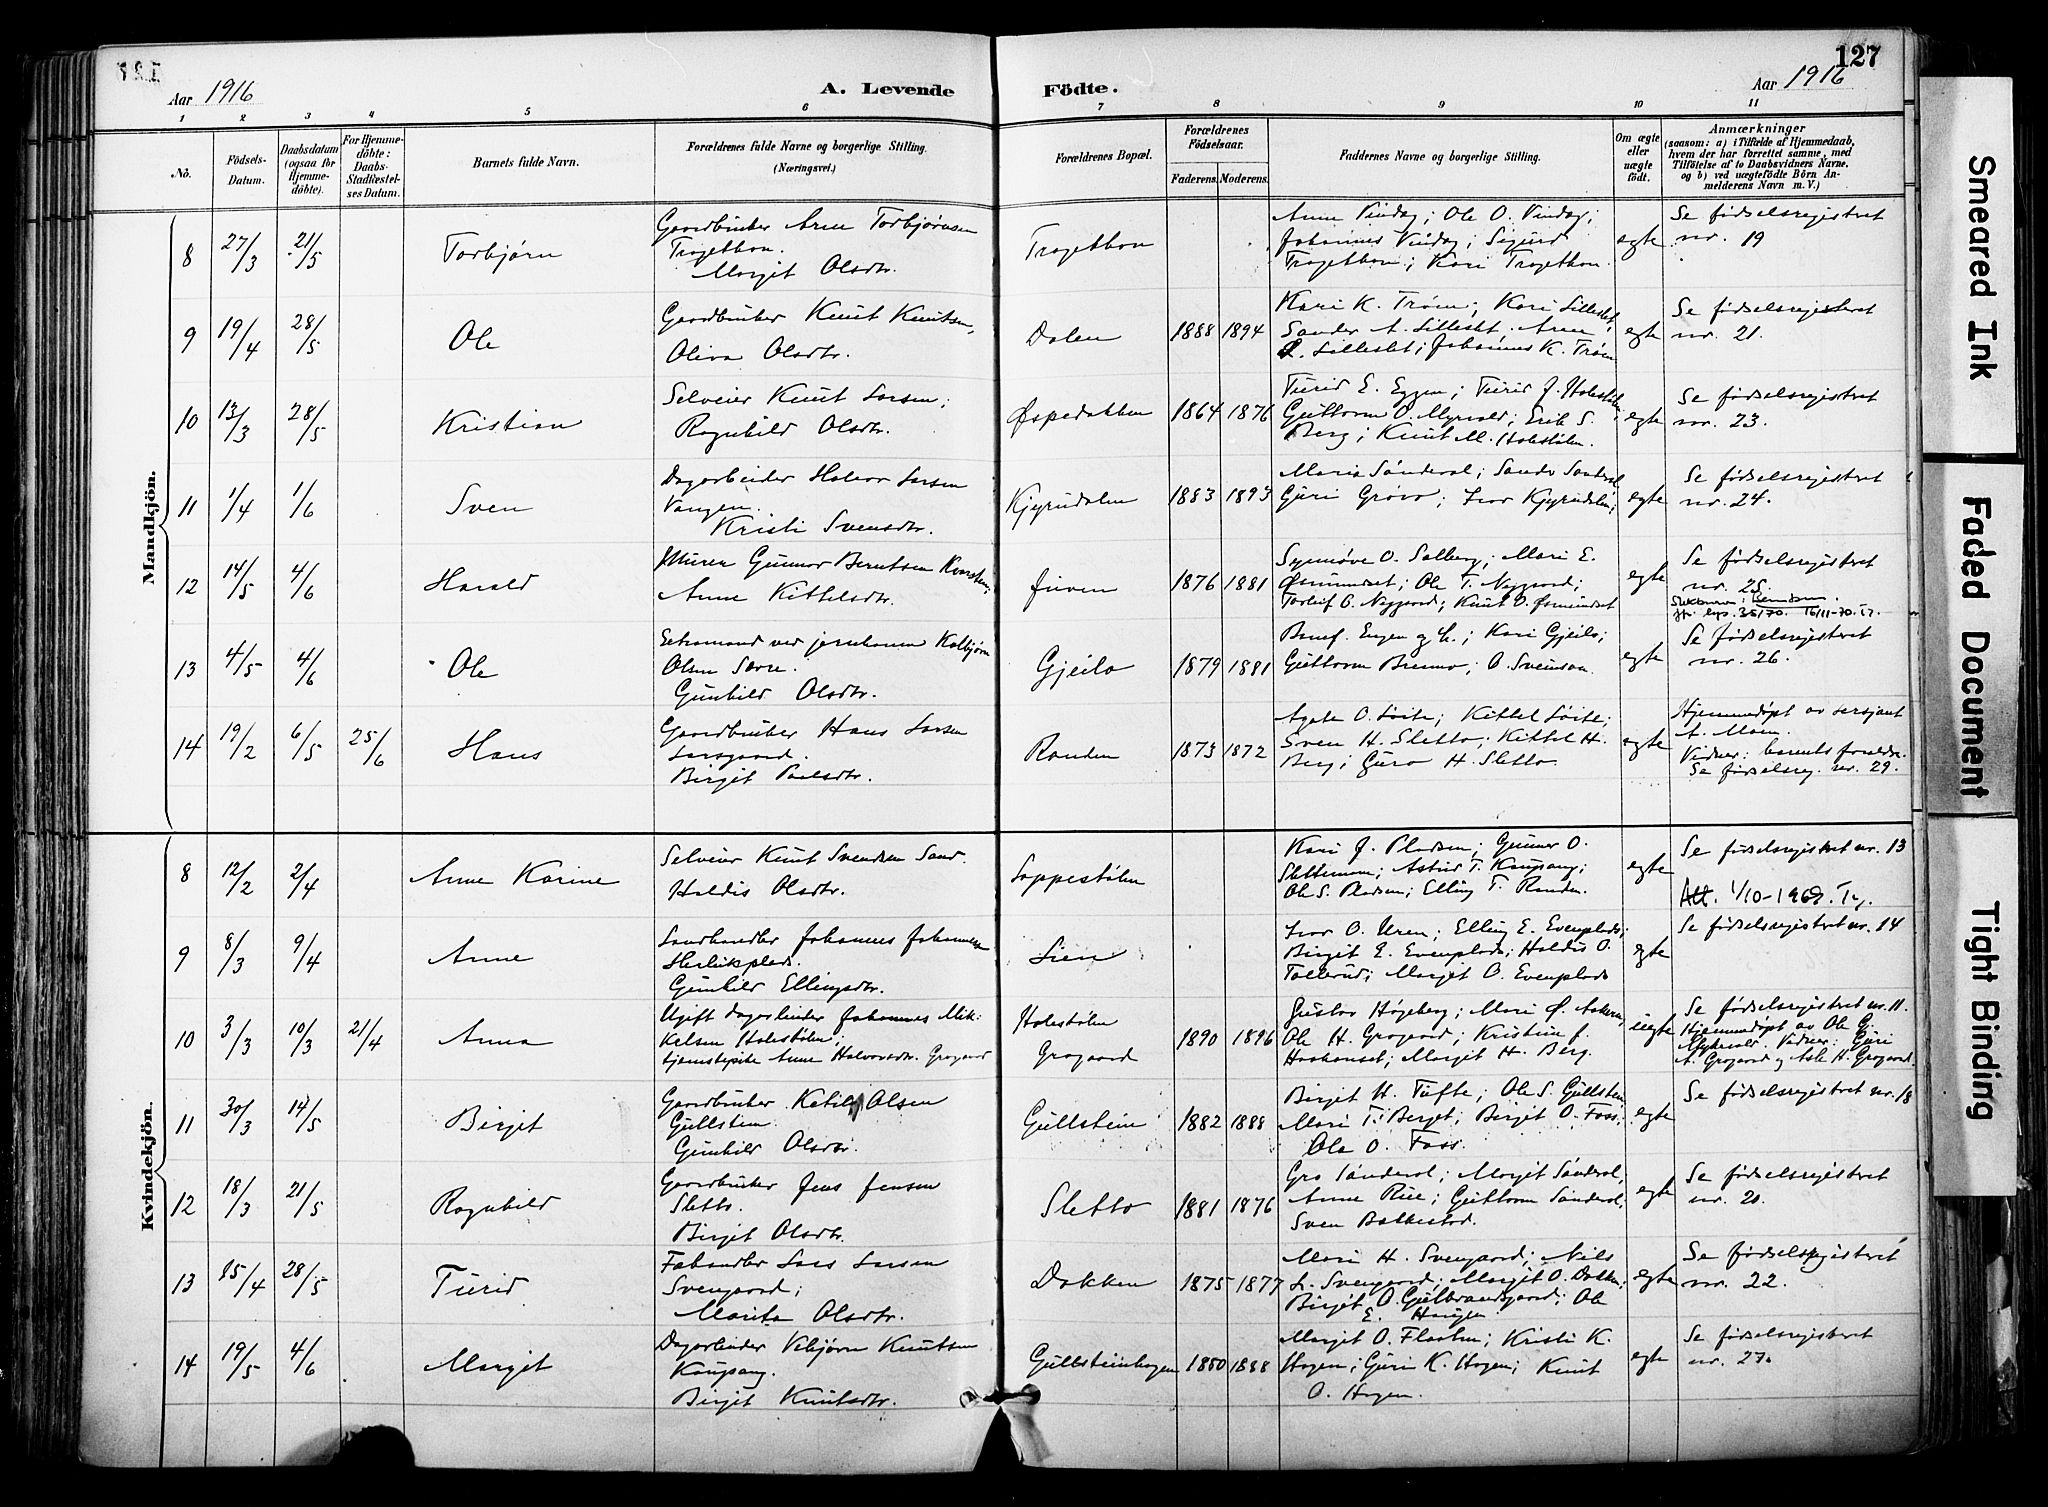 127
Aar 1916
A. Levende
Födte.
Aar 1916
1 2 3 4 5 6 7 8 9 10 11
No.
Födsels-
Datum.
Daabsdatum
(ogsaa for
Hjemme-
döbte).
For Hjemme-
döbte:
Daabs-
Stadfæstel-
ses Datum.
Barnets fulde Navn.
Forældrenes fulde Navne og borgerlige Stilling.
(Næringsvei.)
Forældrenes Bopæl.
Forældrenes
Födselsaar.
Faderens. Moderens.
Faddernes Navne og borgerlige Stilling.
Om ægte
eller
uægte
födt.
Anmærkninger
(saasom: a) i Tilfælde af Hjemmedaab,
hvem der har forrettet samme, med
Tilföielse af to Daabsvidners Navne.
og b) ved uægtefödte Börn An-
melderens Navn m. V.)
Mandkjön.
8 27/3 21/5 Torbjørn
Gaardbruker Arne Torbjørnsen
Trogethon.
Margit Olsdtr.
Trogethon
Anne Vindeg; Ole O. Vindeg;
Johannes Vindeg; Sigurd
Trogethon; Kari Trogethon.
egte
Se fødselsregistret
nr. 19
9 19/4 28/5 Ole
Gaardbruker Knut Knutsen,
Oliva Olsdtr.
Dalen 1888 1894
Kari K. Trøim; Kari Lilleslet,
Sander A. Lilleslet. Arne
Lilleslet; Johannes K. Trøim
egte
Se fødselsregistret
nr. 21.
10 13/3 28/5 Kristian
Selveier Knut Larsen;
Ragnhild Olsdtr.
Øspedokken 1864 1876
Turid E. Eggen; Turid J. Holestølen
Guttorm O. Myrvold; Erik S.
Berg; Knut M. Holestølen.
egte
Se fødselsregistret
nr. 23.
11 1/4 1/6 Sven
Dagarbeider Halvor Larsen
Vangen.
Kristi Svensdtr.
Kjyrudalen 1883 1893
Maria Sønderal; Sander Sønderal
Guri Grøvo; Ivar Kjyrudalen;
egte
Se fødselsregistret
nr. 24.
12 14/5 4/6 Harald
Murer Gunnar Berntsen Kvarsten;
Anne Kittelsdtr.
Juven 1876 1881
Synnøve O. Solberg; Mari E.
Øsmundset; Ole T. Nygaard;
Torleif O. Nygaard; Knut O. Øsmundset
egte
Se fødselsregistret
nr. 25
13 4/5 4/6 Ole
Extramand ved jernbanen Kolbjørn
Olsen Sørre.
Gunhild Olsdtr.
Gjeilo 1879 1881
Kari Gjeilo;
Guttorm Brenno; O. Svenson.
egte
Se fødselsregistret
nr. 26.
14 19/2 6/5 25/6 Hans
Gaardbruker Hans Larsen
Larsgaard.
Birgit Paalsdtr.
Randen 1873 1872
Agate O. Løite; Kittel Løite;
Sven H. Sletto; Kittel H.
Berg; Guro H. Sletto
egte
Hjemmedøpt av sersjant
A. Moen.
Vidner: barnets foreldre.
Se fødselsreg. nr. 29.
Kvindekjön.
8 12/2 2/4 Anne Karine
Selveier Knut Svendsen Sand.
Haldis Olsdtr.
Loppestølen
Kari J. Pladsen; Gunnar O.
Slettemoen; Astrid T. Kaupang;
Ole S. Pladsen; Elling T. Randen.
egte
Se fødselsregistret nr. 13
Att. 1/10-1962. Ty.
9 8/3 9/4 Anne
Landhandler Johannes Johannesen
Herliksplads.
Gunhild Ellingsdtr.
Lien
Ivar O. Uren; Elling E. Evenplads;
Birgit E. Evenplads; Haldis O.
Tollerud; Margit O. Evenplads
egte
Se fødselsregistret nr. 14
10 3/3 10/3 21/4 Anna
Ugift dagarbeider Johannes Mik-
kelsen Holestølen;
tjenestepike Anne Halvorsdtr. Grogaard
Holestølen
Grogaard 1890 1896
Gustav Høgeberg; Mari Ø. Aakeren,
Ole H. Grogaard; Kristine J.
Haakonset; Margit H. Berg.
uegte
Se fødselsregistret nr. 11.
Hjemmedøpt av Ole G.
Myhrvold. Vidner: Guri
A. Grogaard og Asle H. Grogaard
11 30/3 14/5 Birgit
Gaardbruker Ketil Olsen
Gullstein.
Gunhild Olsdtr.
Gullstein 1882 1888
Birgit H. Tufte; Ole S. Gullstein
Mari T. Berget; Birgit O. Foss;
Ola O. Foss.
egte
Se fødselsregistret nr. 18
12 18/3 21/5 Ragnhild
Gaardbruker Jens Jensen
Sletto.
Birgit Olsdtr.
Sletto 1881 1876
Gro Sønderal; Margit Sønderal,
Anne Rue; Guttorm Sønderal,
Sven Bakkestad.
egte
Se fødselsregistret
nr. 20.
13 25/4 28/5 Turid
Fehandler Lars Larsen
Svengaard;
Marita Olsdtr.
Dokken 1875 1877
Mari H. Svengaard; Nils
L. Svengaard; Margit O. Dokken;
Birgit O. Gulbrandsgaard; Ole
E. Haugen
egte
Se fødselsregistret
nr. 22.
14 19/5 4/6 Margit
Dagarbeider Vebjørn Knutsen
Kaupang.
Birgit Knutsdtr.
Gullsteinhagen 1880 1888
Margit O. Flaaten; Kristi K.
Hagen; Guri K. Hagen; Knut
O. Hagen.
egte
Se fødselsregistret
nr. 27.
Smeared Ink
Faded Document
Tight Binding